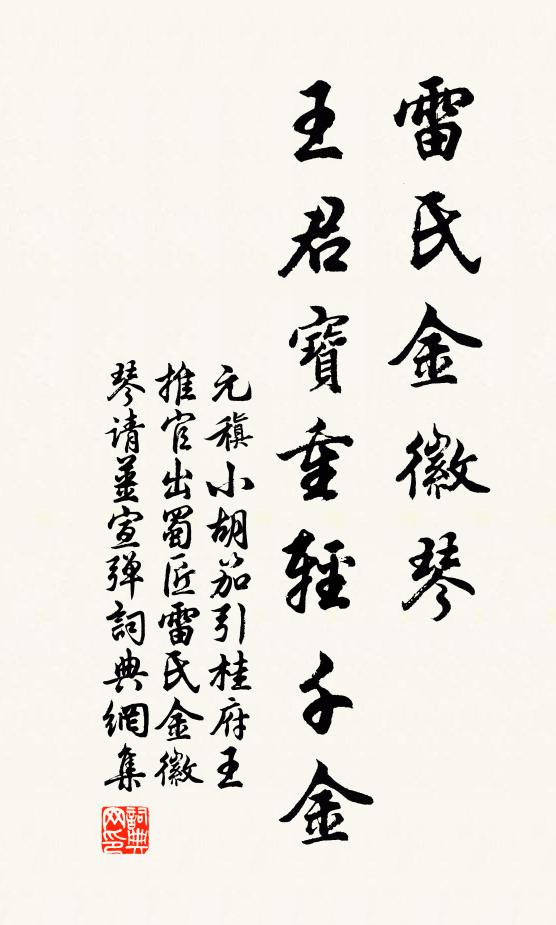 雷氏金徽琴
王君寶重輕千金
元稹小胡笳引桂府王
推官出蜀匠雷氏金徽
琴请姜宣弹詞典網集
詞典网印